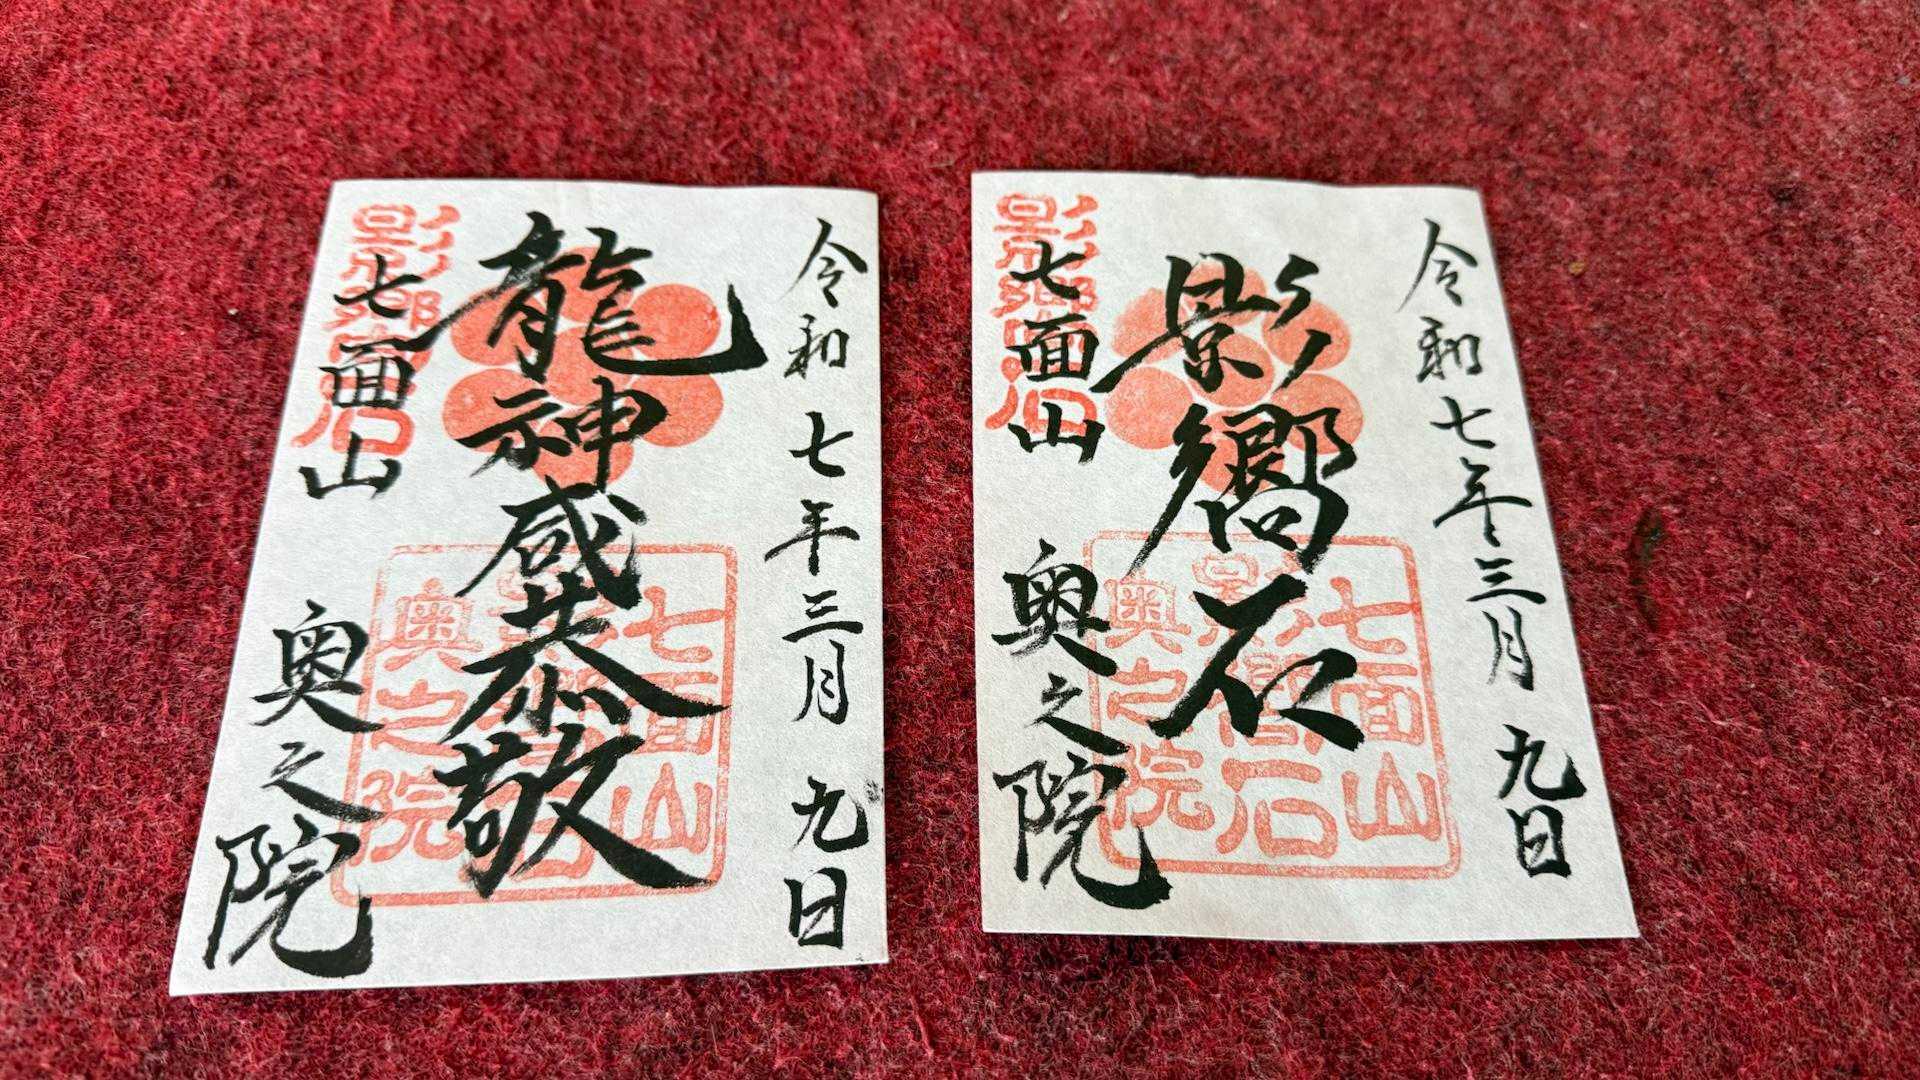 令和七年三月九日
龍神咸恭敬
七面山 奥之院
影嚮石
七面山
影嚮石
奥之院
令和七年三月九日
影嚮石
七面山 奥之院
影嚮石
七面山
影嚮石
奥之院